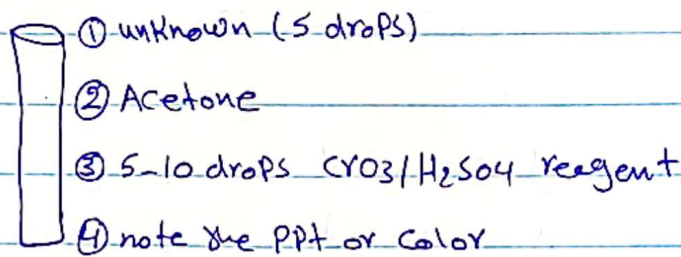 ① unknown (5 drops)
② Acetone
③ 5-10 drops CrO3/H2SO4 reegent
④ note the PPt or Color